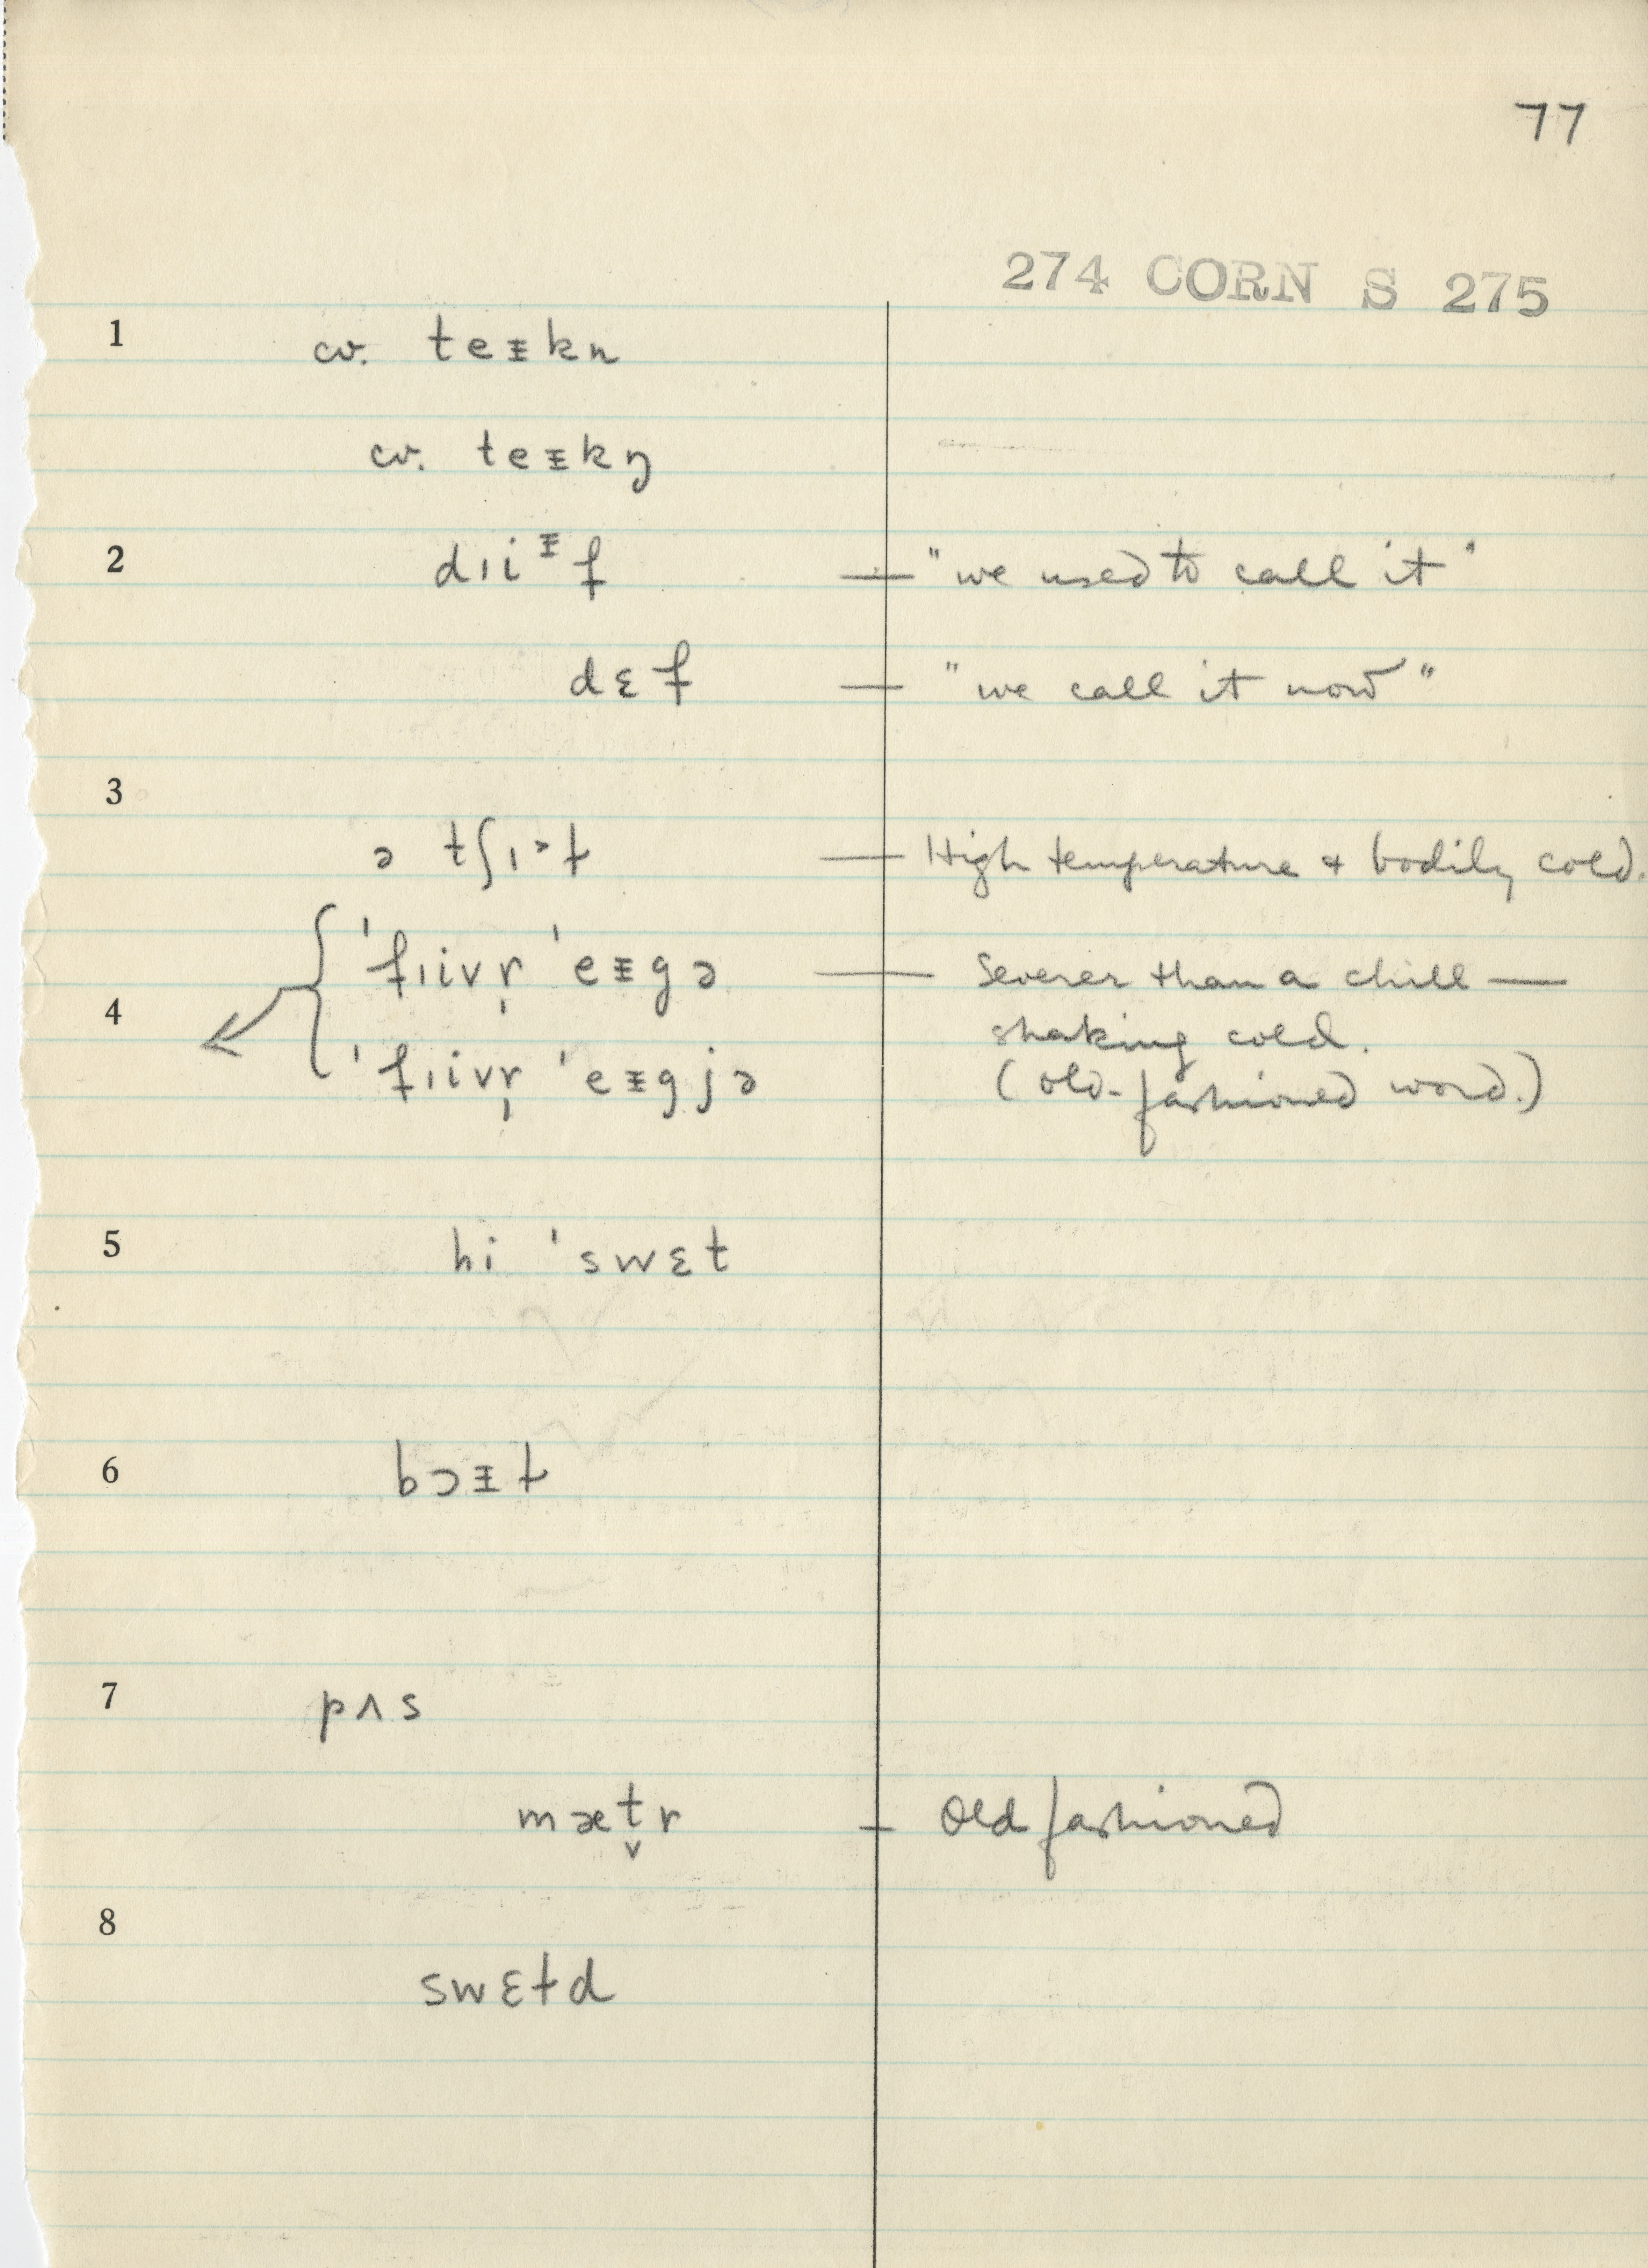 77
274 CORN S 275
1 cv. teᵻkn
cv. teᵻkŋ
2 dıiᵻf — "we used to call it"
dɛf — "we call it now"
3
ə tʃı˃ɫ — High temperature & bodily cold.
'fıivr̩ 'eᵻgə — Severer than a chill —
4 shaking cold.
'fıivr̩ 'eᵻgjə (old-fashioned word.)
5 hi 'swɛt
6 bɔᵻɫ
7 pʌs
mæt̬r — Old fashioned
8
swɛɫd